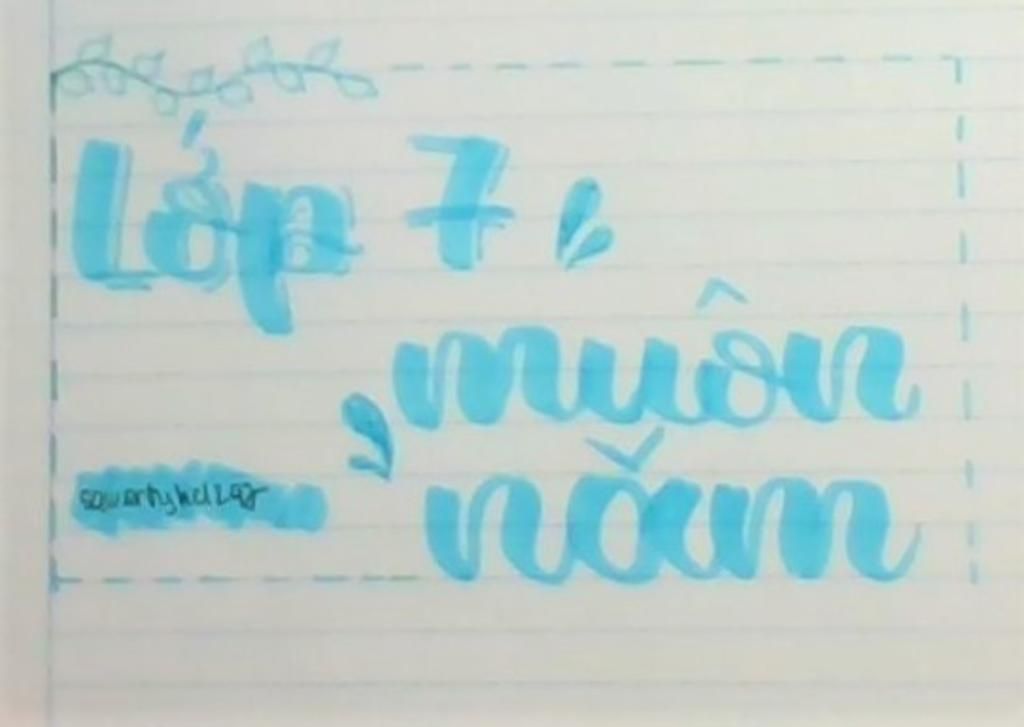 Lớp 7
muôn
năm